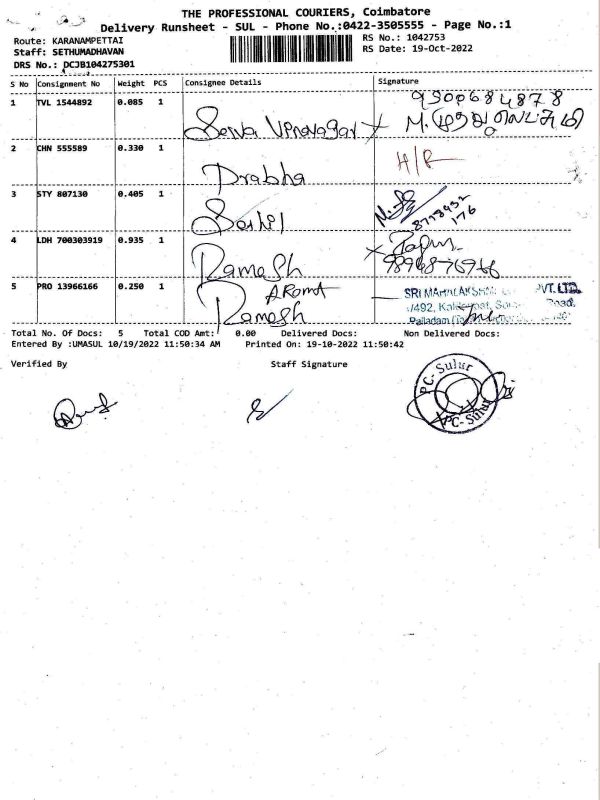 THE PROFESSIONAL COURIERS, Coimbatore
Delivery Runsheet - SUL - Phone No.:0422-3505555 - Page No.:1
Route: KARANAMPETTAI RS No.: 1042753
Staff: SETHUMADHAVAN RS Date: 19-Oct-2022
DRS No.: DCJB104275301
S No Consignment No Weight PCS Consignee Details Signature
1 TVL 1544892 0.085 1
2 CHN 555589 0.330 1 Prabha H/R
3 STY 807130 0.405 1
4 LDH 700303919 0.935 1 Ramesh
5 PRO 13966166 0.250 1 Ramesh SRI PVT.LTD.
Total No. Of Docs: 5 Total COD Amt: 0.00 Delivered Docs: Non Delivered Docs:
Entered By :UMASUL 10/19/2022 11:50:34 AM Printed On: 19-10-2022 11:50:42
Verified By Staff Signature
PC-Sulur
PC-Sulur